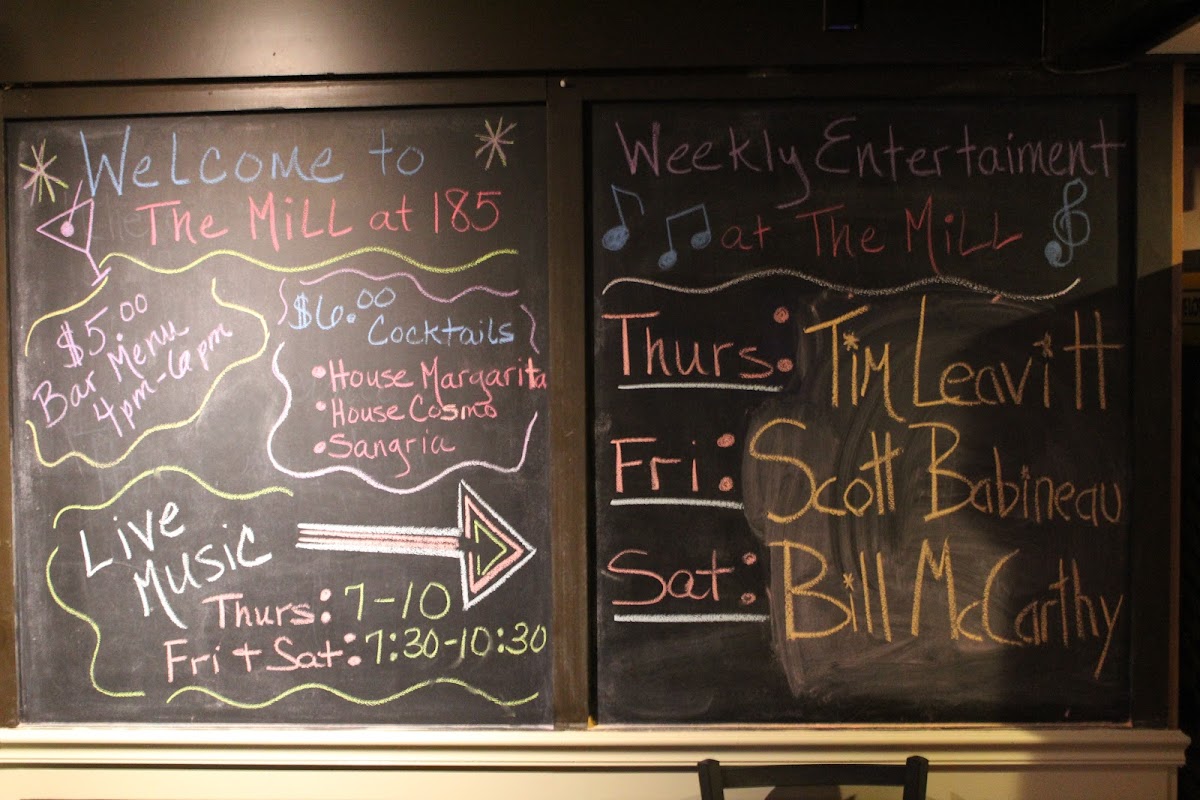 Welcome to
The Mill at 185
$5.00
Bar Menu
4pm-6pm
$6.00
Cocktails
• House Margarita
• House Cosmo
• Sangria
Live
Music
Thurs: 7-10
Fri + Sat: 7:30-10:30
Weekly Entertaiment
at The Mill
Thurs: Tim Leavitt
Fri: Scott Babineau
Sat: Bill McCarthy